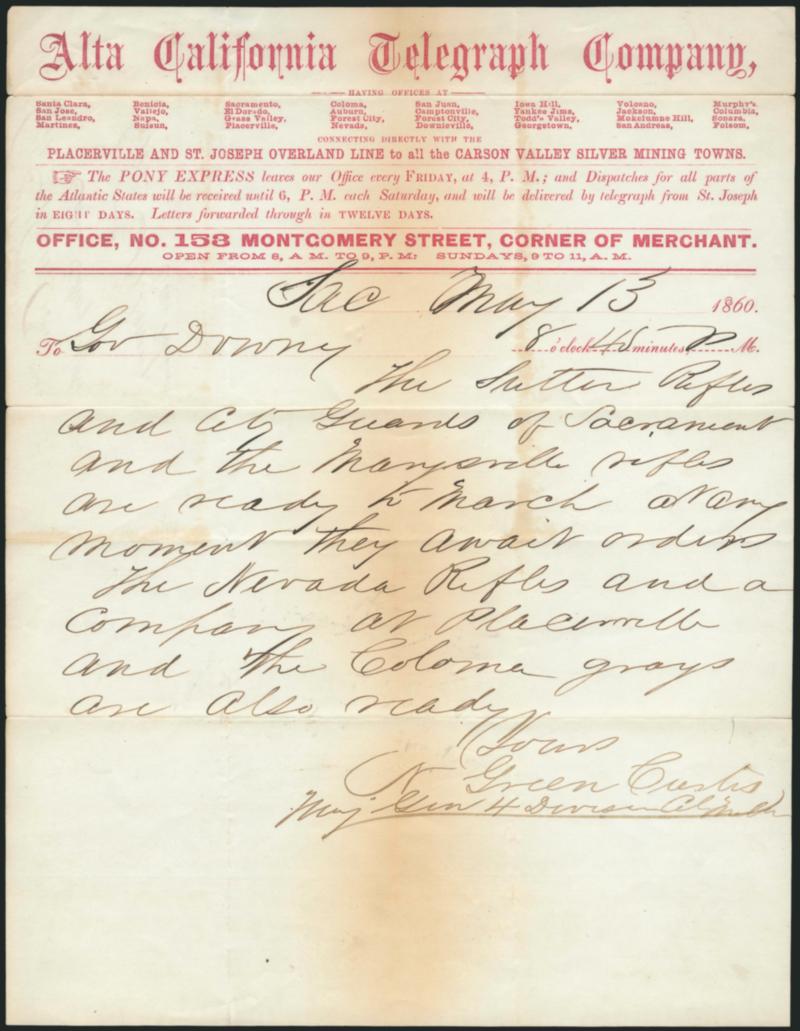 Alta California Telegraph Company,
HAVING OFFICES AT
Santa Clara, Benicia, Sacramento, Coloma, San Juan, Iowa Hill, Volcano, Murphy's
San Jose, Vallejo, El Dorado, Auburn, Camptonville, Yankee Jims, Jackson, Columbia,
San Leandro, Napa, Grass Valley, Forest City, Forest City, Todd's Valley, Mokelumne Hill, Sonora,
Martinez, Suisun, Placerville, Nevada, Downieville, Georgetown, San Andreas, Folsom,
CONNECTING DIRECTLY WITH THE
PLACERVILLE AND ST. JOSEPH OVERLAND LINE to all the CARSON VALLEY SILVER MINING TOWNS.
☞ The PONY EXPRESS leaves our Office every FRIDAY, at 4, P. M.; and Dispatches for all parts of
the Atlantic States will be received until 6, P. M. each Saturday, and will be delivered by telegraph from St. Joseph
in EIGHT DAYS. Letters forwarded through in TWELVE DAYS.
OFFICE, NO. 153 MONTGOMERY STREET, CORNER OF MERCHANT.
OPEN FROM 8, A. M. TO 9, P. M: SUNDAYS, 9 TO 11, A. M.
Sac May 13 1860.
To Gov Downey 8 o'clock 45 minutes P M.
The Sutter Rifles
and City Guards of Sacrament
and the Marysville rifles
are ready to March at any
moment they await orders
The Nevada Rifles and a
Company at Placerville
and the Coloma grays
are also ready
Yours
N Green Curtis
Maj Gen 4 Division